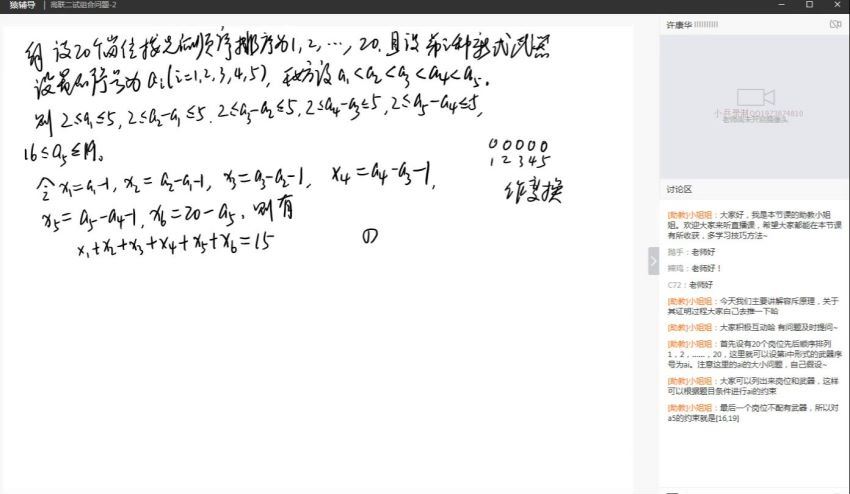 猿辅导 | 高联二试组合问题-2
解 设20个岗位按先后顺序排序为1, 2, …, 20. 且设第i种新式武器
设置的序号为 aᵢ(i=1,2,3,4,5), 我方设 a₁<a₂<a₃<a₄<a₅.
则 2≤a₁≤5, 2≤a₂-a₁≤5, 2≤a₃-a₂≤5, 2≤a₄-a₃≤5, 2≤a₅-a₄≤5,
16≤a₅≤19.
00000
12345
令 x₁=a₁-1, x₂=a₂-a₁-1, x₃=a₃-a₂-1, x₄=a₄-a₃-1,
作变换
x₅=a₅-a₄-1, x₆=20-a₅. 则有
x₁+x₂+x₃+x₄+x₅+x₆=15 ①
许康华
小兵录制QQ1973874810
老师尚未开启摄像头
讨论区
[助教]小姐姐：大家好，我是本节课的助教小姐
姐。欢迎大家来听直播课，希望大家都能在本节课
有所收获，多学习技巧方法~
老师好
老师好！
C72：老师好
[助教]小姐姐：今天我们主要讲解容斥原理，关于
其证明过程大家自己去推一下哈
[助教]小姐姐：大家积极互动哈 有问题及时提问~
[助教]小姐姐：首先设有20个岗位先后顺序排列
1，2，……，20，这里就可以设第i中形式的武器序
号为ai。注意这里的ai的大小问题，自己假设~
[助教]小姐姐：大家可以列出来岗位和武器，这样
可以根据题目条件进行ai的约束
[助教]小姐姐：最后一个岗位不配有武器，所以对
a5的约束就是[16,19]